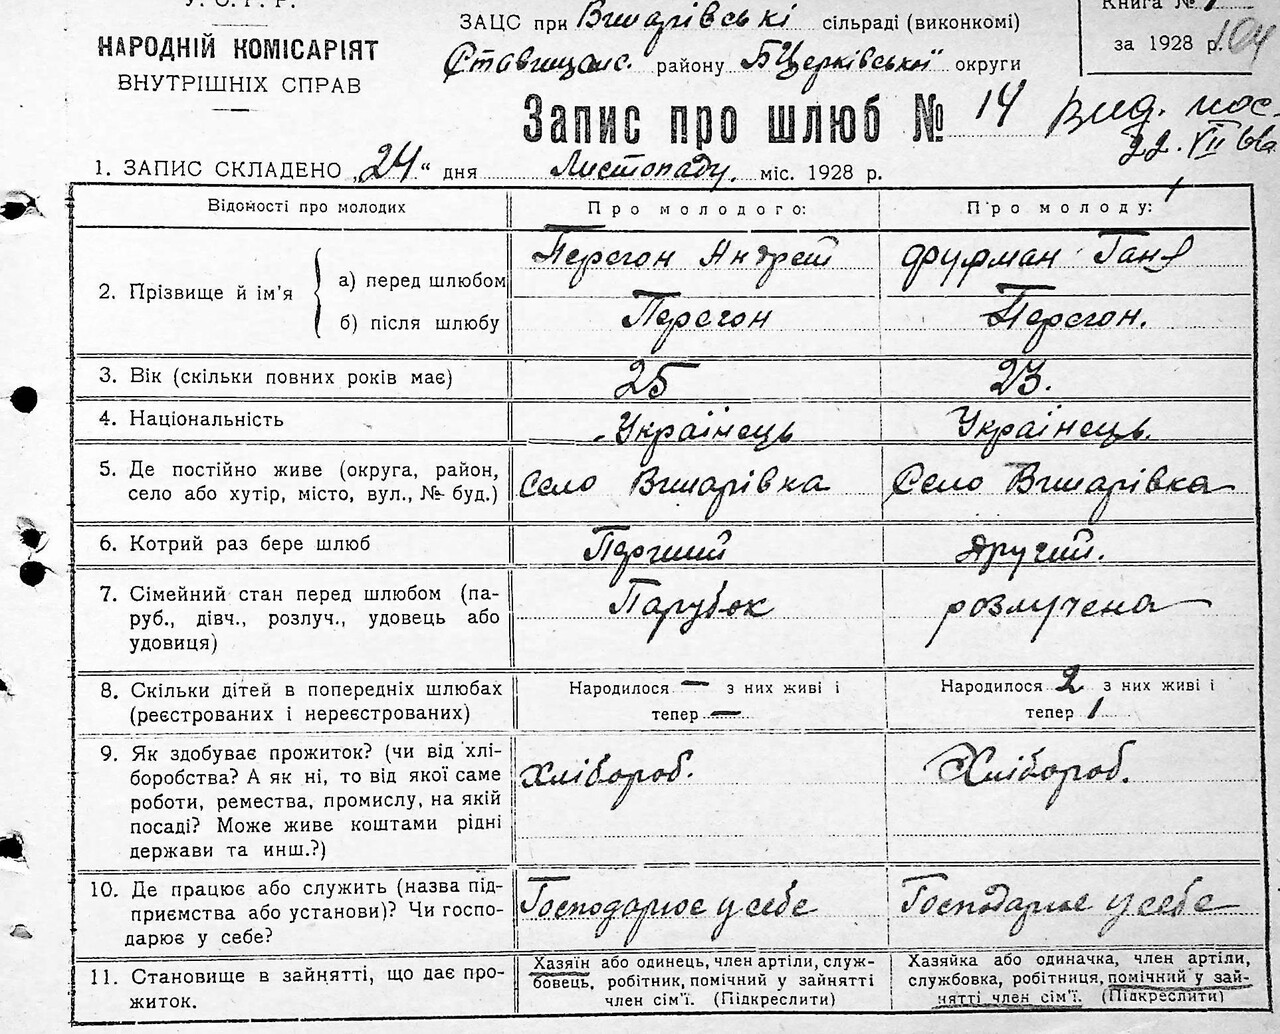 У. С. Р. Р.
НАРОДНІЙ КОМІСАРІЯТ
ВНУТРІШНІХ СПРАВ
ЗАЦС при Вишарівські сільраді (виконкомі)
Ставищанс. району БЦерківської округи
Книга №
за 1928 р.
104
Запис про шлюб № 14
Вид. пос.
22. VII
1. ЗАПИС СКЛАДЕНО „24“ дня Листопаду. міс. 1928 р.
Відомості про молодих
Про молодого:
Про молоду:
2. Прізвище й ім'я
а) перед шлюбом
Перегон Андрей
Фурман Ганя
б) після шлюбу
Перегон
Перегон.
3. Вік (скільки повних років має)
25
23.
4. Національність
Українець
Українець.
5. Де постійно живе (округа, район,
село або хутір, місто, вул., № буд.)
Село Вишарівка
Село Вишарівка
6. Котрий раз бере шлюб
Перший
Другий.
7. Сімейний стан перед шлюбом (па-
руб., дівч., розлуч., удовець або
удовиця)
Парубок
розлучена
8. Скільки дітей в попередніх шлюбах
(реєстрованих і нереєстрованих)
Народилося — з них живі і
тепер —
Народилося 2 з них живі і
тепер 1
9. Як здобуває прожиток? (чи від хлі-
боробства? А як ні, то від якої саме
роботи, ремества, промислу, на якій
посаді? Може живе коштами рідні
держави та инш.?)
Хлібороб.
Хлібороб.
10. Де працює або служить (назва під-
приємства або установи)? Чи госпо-
дарює у себе?
Господарює у себе
Господарює у себе
11. Становище в зайнятті, що дає про-
житок.
Хазяїн або одинець, член артіли, служ-
бовець, робітник, помічний у зайнятті
член сім'ї. (Підкреслити)
Хазяйка або одиначка, член артіли,
службовка, робітниця, помічний у зай-
нятті член сім'ї. (Підкреслити)